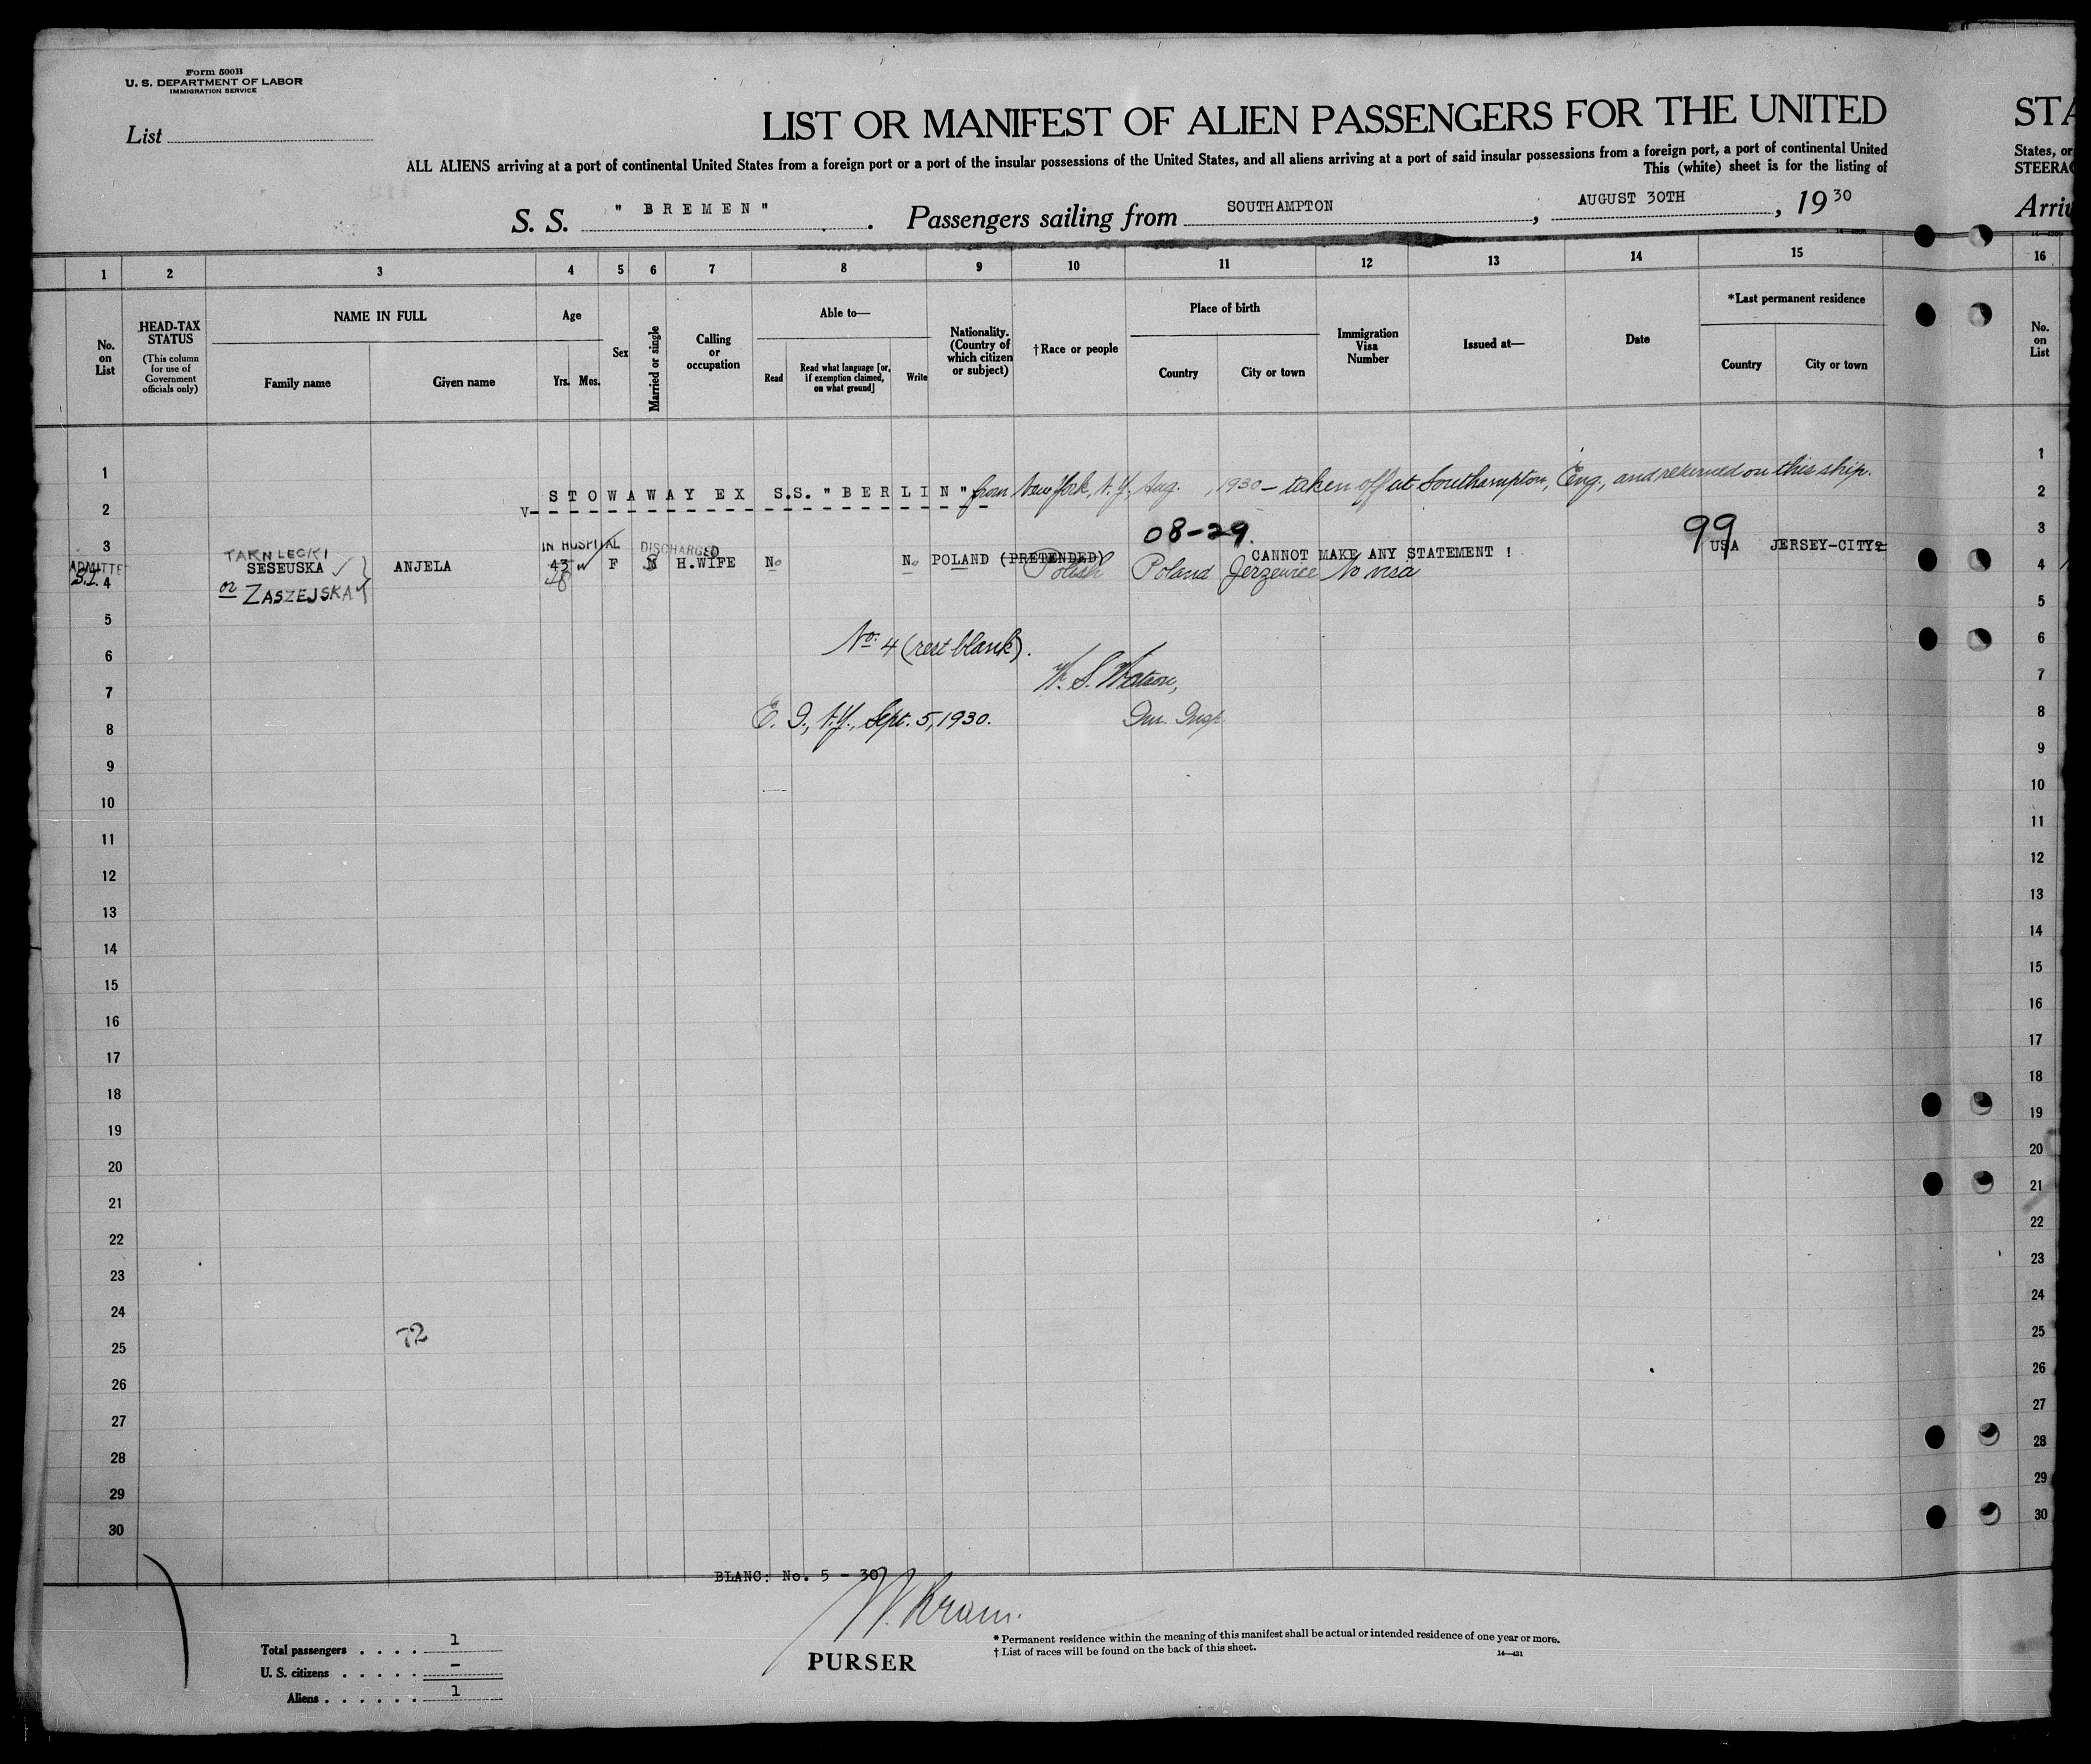 Form 500B
U. S. DEPARTMENT OF LABOR
IMMIGRATION SERVICE
List
LIST OR MANIFEST OF ALIEN PASSENGERS FOR THE UNITED
STA
ALL ALIENS arriving at a port of continental United States from a foreign port or a port of the insular possessions of the United States, and all aliens arriving at a port of said insular possessions from a foreign port, a port of continental United
States, or
This (white) sheet is for the listing of
STEERAG
S. S. " BREMEN " . Passengers sailing from SOUTHAMPTON , AUGUST 30TH , 1930
Arriv
1 2 3 4 5 6 7 8 9 10 11 12 13 14 15 16
No. on List
HEAD-TAX STATUS
(This column for use of Government officials only)
NAME IN FULL
Family name
Given name
Age
Yrs. Mos.
Sex
Married or single
Calling or occupation
Able to—
Read
Read what language [or, if exemption claimed, on what ground]
Write
Nationality. (Country of which citizen or subject)
†Race or people
Place of birth
Country
City or town
Immigration Visa Number
Issued at—
Date
*Last permanent residence
Country
City or town
No. on List
1
2
3
4
5
6
7
8
9
10
11
12
13
14
15
16
17
18
19
20
21
22
23
24
25
26
27
28
29
30
STOWAWAY EX S.S. "BERLIN" from New York, N.Y., Aug. , 1930 – taken off at Southampton, Eng., and returned on this ship.
08-29.
99
IN HOSPITAL DISCHARGED
ADMITTE
S.I.
SESEUSKA
ANJELA
43
48
F
H.WIFE
No
No
POLAND (PRETENDED)
Polish
CANNOT MAKE ANY STATEMENT !
Poland Jerzewice No visa
USA
JERSEY-CITY
or ZASZEJSKA
No. 4 (rest blank).
W. S. Watson,
Im. Insp.
E. I., N.Y., Sept. 5, 1930.
72
BLANC: No. 5 - 30
PURSER
Total passengers 1
U. S. citizens -
Aliens 1
* Permanent residence within the meaning of this manifest shall be actual or intended residence of one year or more.
† List of races will be found on the back of this sheet.
14—431
1
2
3
4
5
6
7
8
9
10
11
12
13
14
15
16
17
18
19
20
21
22
23
24
25
26
27
28
29
30